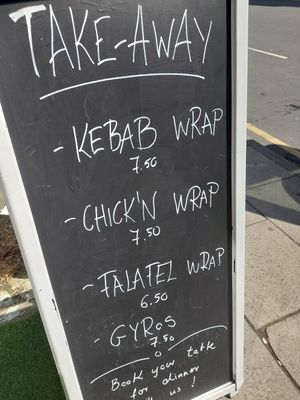 TAKE-AWAY
- KEBAB WRAP
7.50
- CHICK'N WRAP
7.50
- FALAFEL WRAP
6.50
- GYROS
7.50
Book your table
for dinner
us!